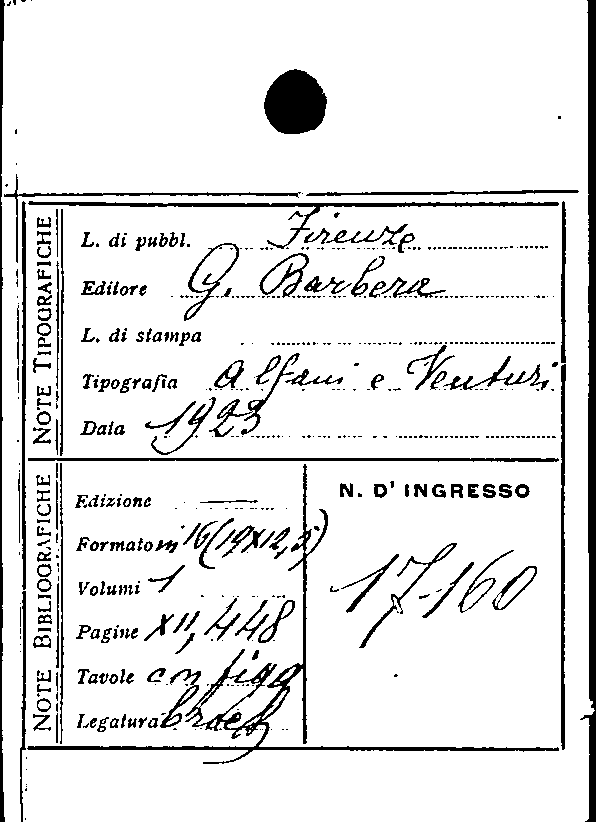 NOTE TIPOGRAFICHE
L. di pubbl. Firenze
Editore G. Barbera
L. di stampa
Tipografia Alfani e Venturi
Data 1923
NOTE BIBLIOGRAFICHE
Edizione —
Formato in 16 (19x12,5)
Volumi 1
Pagine XII, 448
Tavole con figg
Legatura broch
N. D' INGRESSO
17-160